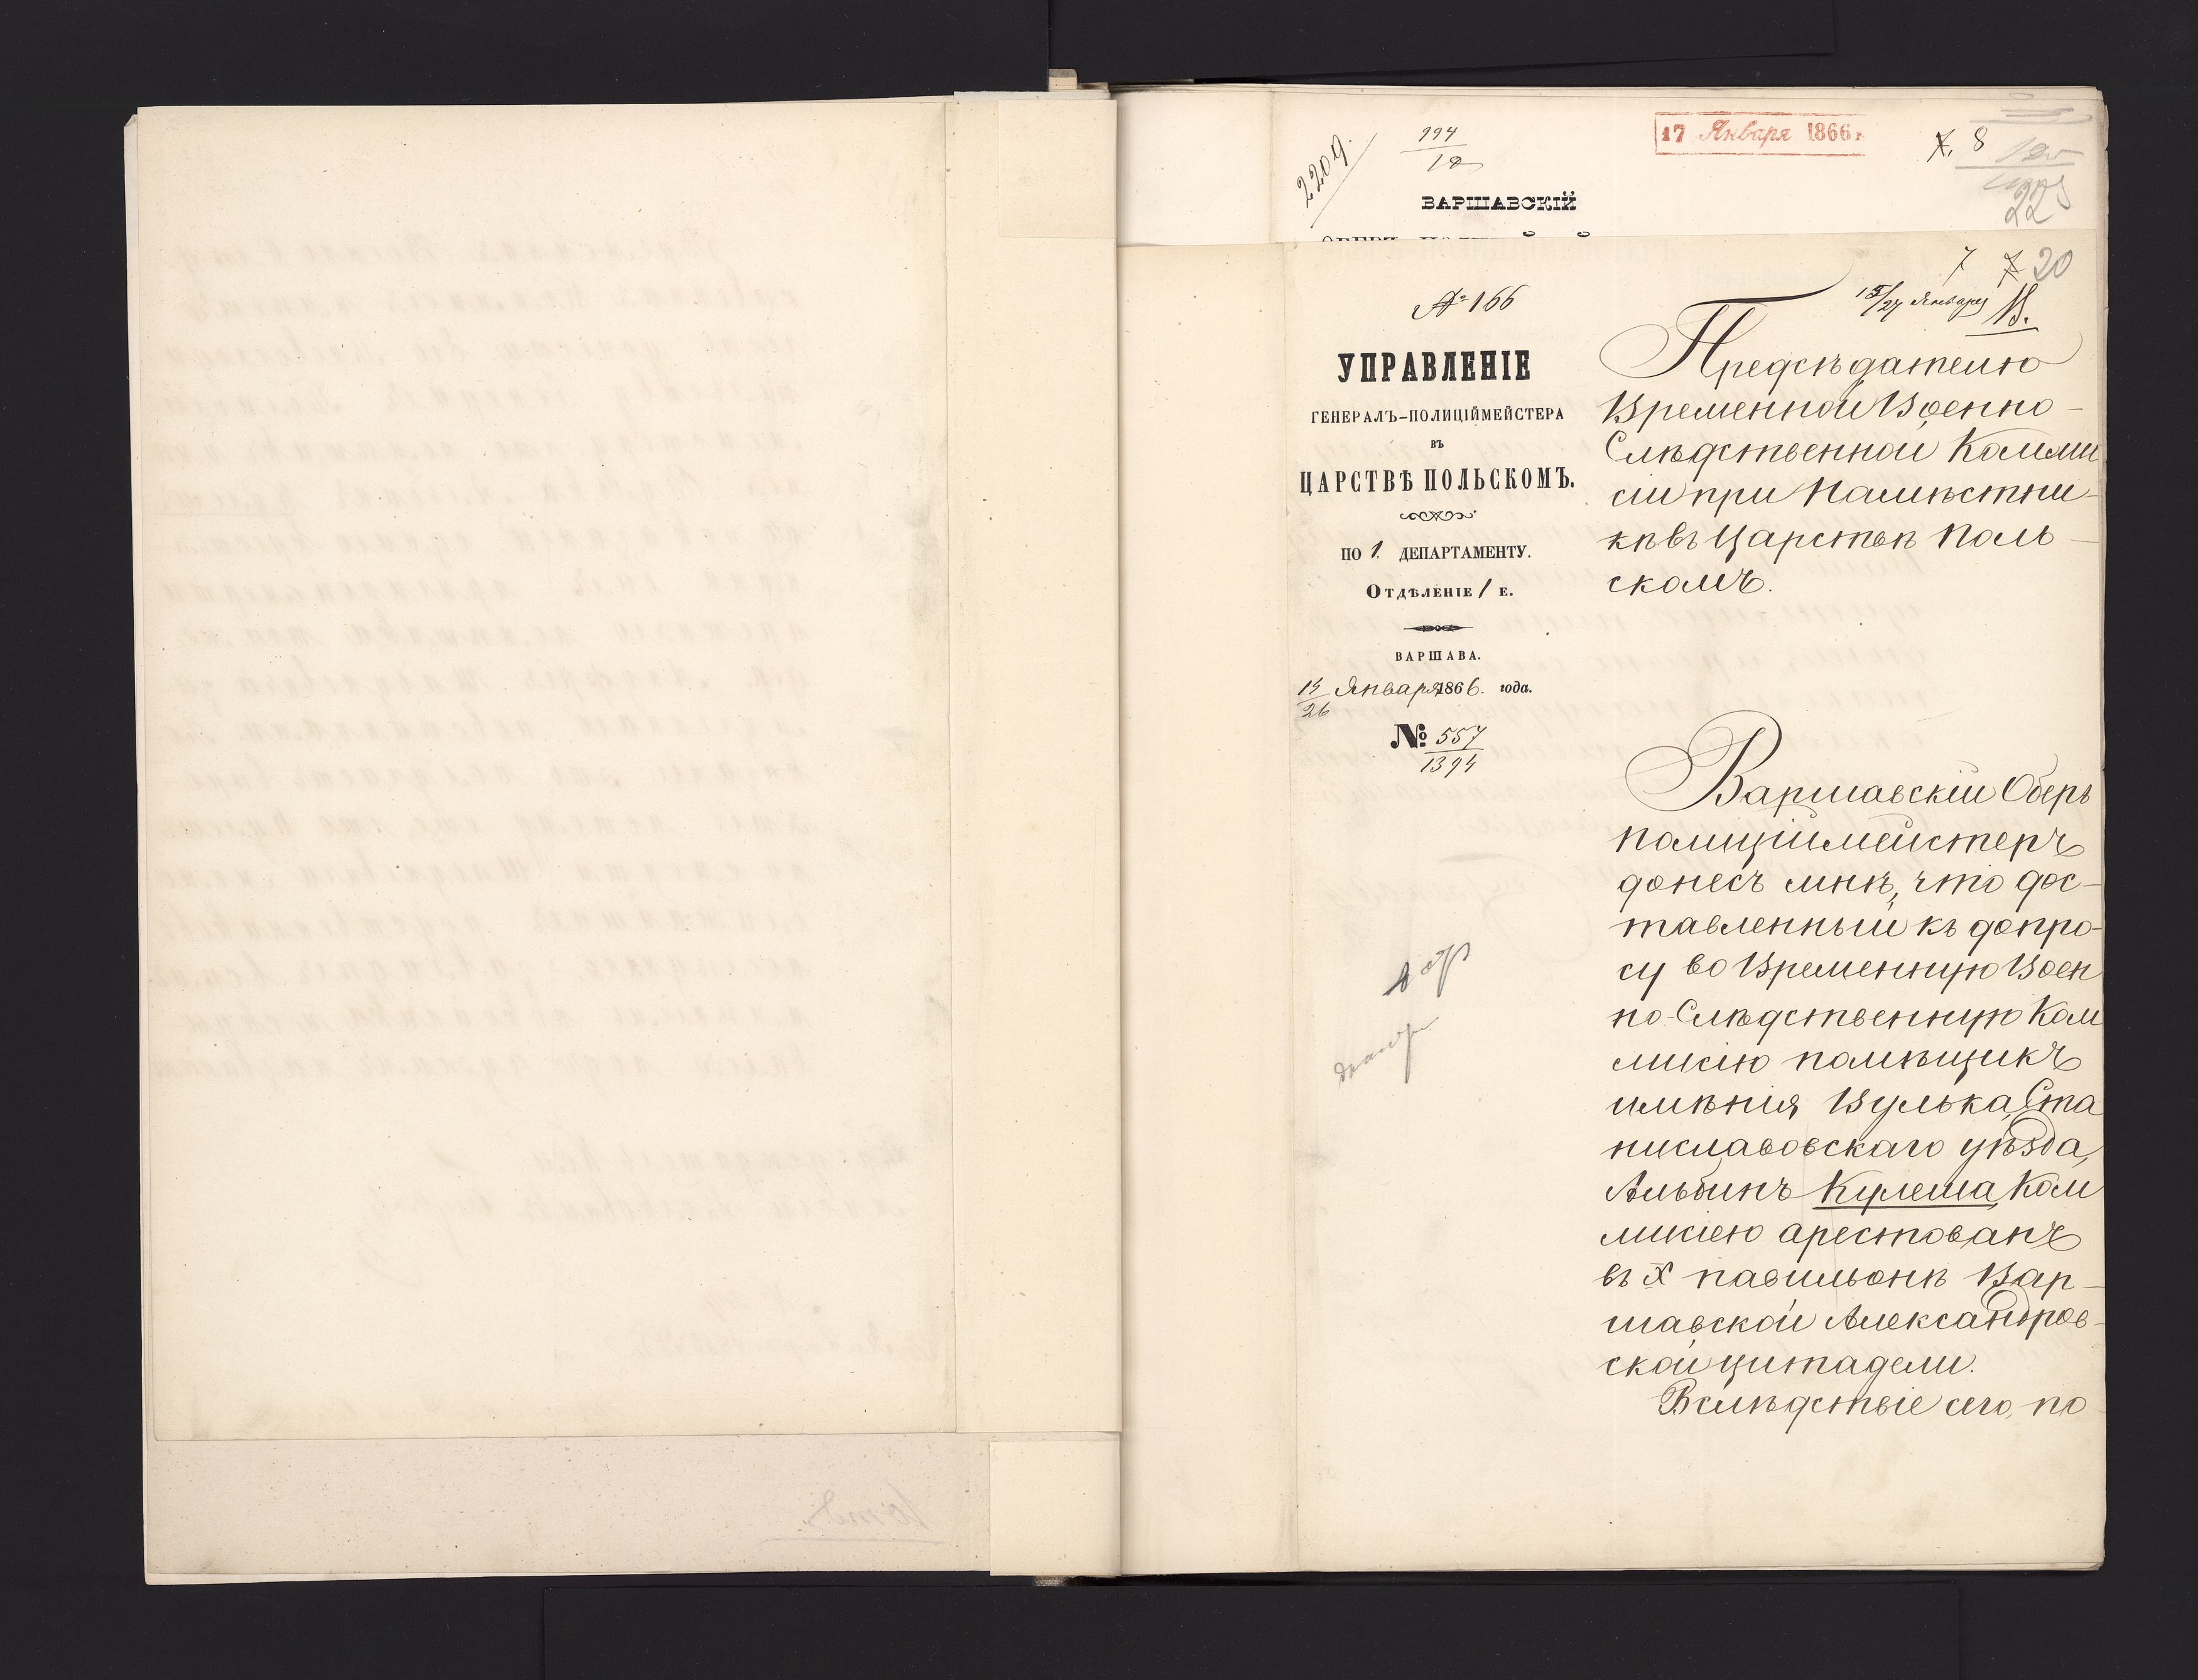 2209.
194
12
17 Января 1866 г.
7. 8
22
ВАРШАВСКІЙ
7 7 20
№ 166
15/27 Января
УПРАВЛЕНІЕ
ГЕНЕРАЛЪ-ПОЛИЦІЙМЕЙСТЕРА
ВЪ
ЦАРСТВѢ ПОЛЬСКОМЪ.
ПО 1. ДЕПАРТАМЕНТУ.
ОТДѢЛЕНІЕ 1 Е.
ВАРШАВА.
14/26 Января 1866. года.
№ 557
1394
Предсѣдателю
Временной Военно-
Слѣдственной Комми
сіи при Намѣстни-
кѣ въ Царствѣ Поль-
скомъ.
Варшавскій Оберъ
Полиціймейстеръ
донесъ мнѣ, что дос-
тавленный къ допро-
су во Временную Воен
но-Слѣдственную Ком
мисію помѣщикъ
имѣнія Вулька, Ста
ниславовскаго уѣзда,
Альбинъ Кулеша, Ком
мисіею арестованъ
въ X павильонѣ Вар-
шавской Александров-
ской цитадели.
Вслѣдствіе сего, по